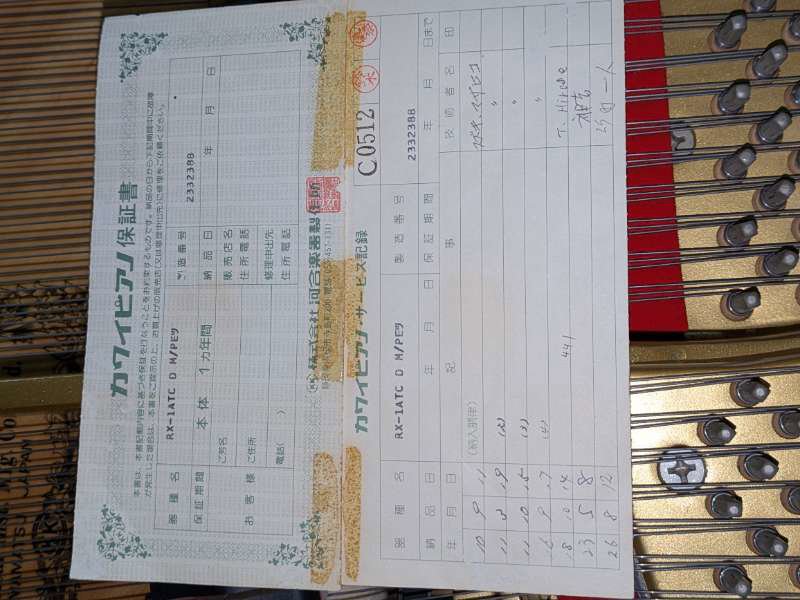 カワイピアノ保証書
本書は、本書記載内容に基づき保証を行なうことをお約束するものです。納品の日から下記期間中に故障
が発生した場合は、本書をご提示の上、お買上げの販売店(又は修理申出先)に修理をご依頼ください。
器種名 RX-1ATC D M/PEツ 製造番号 2332388
保証期間 本体 1ヵ年間 納品日 年 月 日
お客様 ご芳名 販売店名
住所電話
ご住所 修理申出先
電話( ) 住所電話
株式会社河合楽器製作所
C0512
カワイピアノ・サービス記録
器種名 RX-1ATC D M/PEツ 製造番号 2332388
納品日 年 月 日 保証期間 年 月 日まで
年月日 記事 技術者名 印
10 9 11 (納入調律)
11 3 19 (2)
11 10 15 (3)
16 9 17 (4)
18 10 14 441 T. Hirose
23 5 8
26 8 12
JAPAN